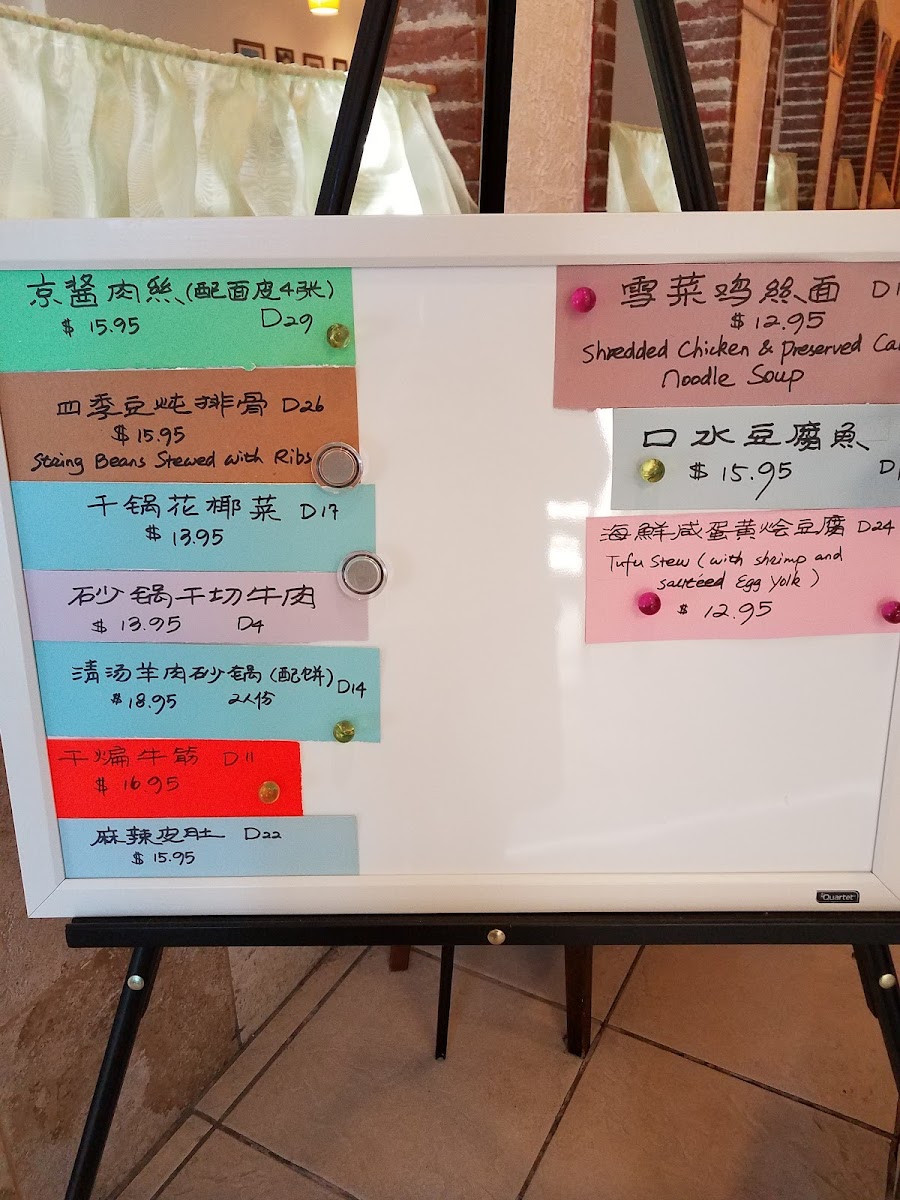 京酱肉絲(配面皮4张)
$ 15.95 D29
四季豆炖排骨 D26
$ 15.95
String Beans Stewed with Ribs
干锅花椰菜 D17
$ 13.95
砂锅干切牛肉
$ 13.95 D4
清汤羊肉砂锅(配饼) D14
$ 18.95 2人份
干煸牛筋 D11
$ 16.95
麻辣皮肚 D22
$ 15.95
雪菜鸡絲面
$ 12.95
Shredded Chicken & Preserved
Noodle Soup
口水豆腐魚
$ 15.95
海鮮咸蛋黄烩豆腐 D24
Tufu Stew (with shrimp and
sautéed Egg Yolk)
$ 12.95
Quartet